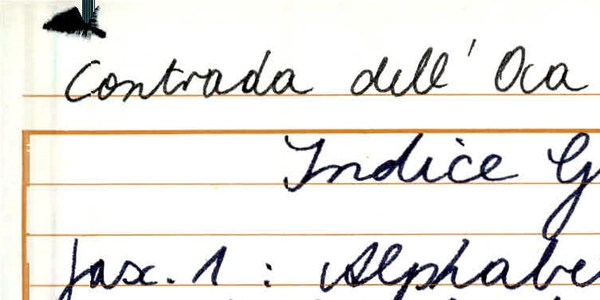 Contrada dell' Oca
Indice G
fasc. 1 : Alphabe